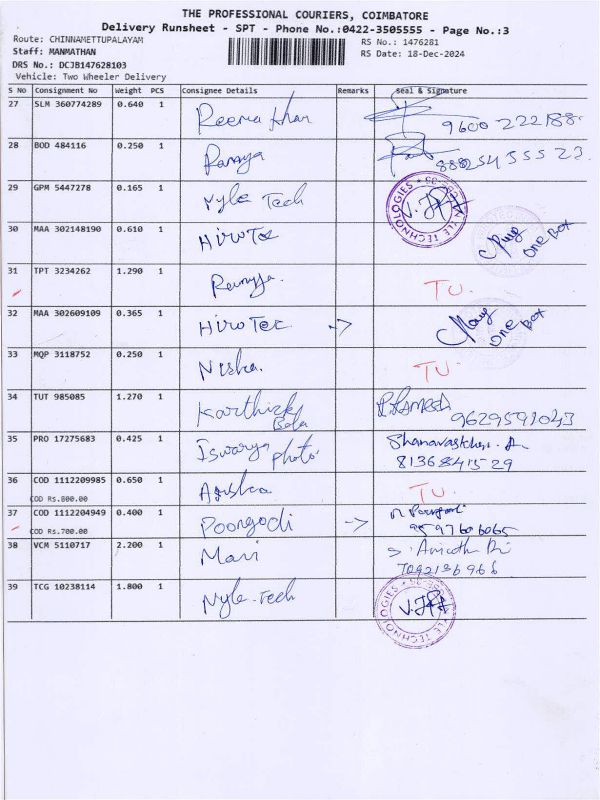 THE PROFESSIONAL COURIERS, COIMBATORE
Delivery Runsheet - SPT - Phone No.:0422-3505555 - Page No.:3
Route: CHINNAMETTUPALAYAM RS No.: 1476281
Staff: MANMATHAN RS Date: 18-Dec-2024
DRS No.: DCJB147628103
Vehicle: Two Wheeler Delivery
S No Consignment No Weight PCS Consignee Details Remarks Seal & Signature
27 SLM 360774289 0.640 1 Reema khan 9600 222188
28 BOD 484116 0.250 1 Ramya
29 GPM 5447278 0.165 1 Nyle Tech
30 MAA 302148190 0.610 1 Hiro Tec one Box
31 TPT 3234262 1.290 1 Ramya. TU.
32 MAA 302609109 0.365 1 Hiro Tec -> one Box
33 MQP 3118752 0.250 1 Nisha. TU.
34 TUT 985085 1.270 1 Karthick Bala 9629591043
35 PRO 17275683 0.425 1 Iswarya photo 8136841529
36 COD 1112209985 0.650 1 TU.
COD Rs.800.00
37 COD 1112204949 0.400 1 Poongodi ->
COD Rs.700.00
38 VCM 5110717 2.200 1 Mari 7092136966
39 TCG 10238114 1.800 1 Nyle-Tech